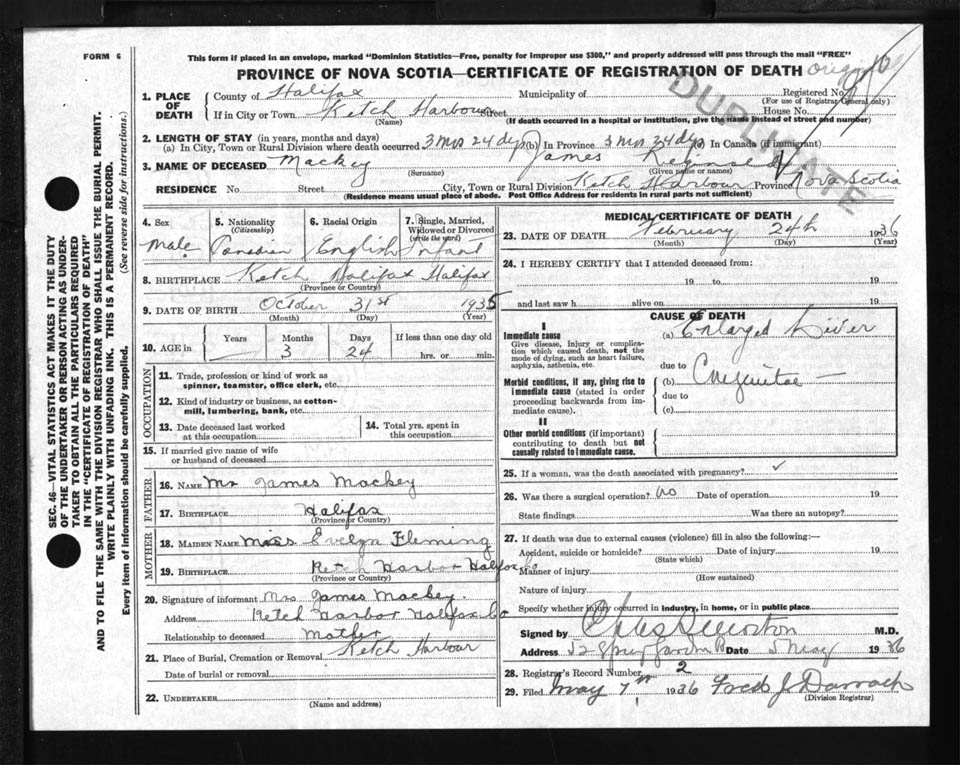 FORM 6
This form if placed in an envelope, marked "Dominion Statistics—Free, penalty for improper use $300," and properly addressed will pass through the mail "FREE"
PROVINCE OF NOVA SCOTIA—CERTIFICATE OF REGISTRATION OF DEATH
DUPLICATE
SEC. 46—VITAL STATISTICS ACT MAKES IT THE DUTY
OF THE UNDERTAKER OR PERSON ACTING AS UNDER-
TAKER TO OBTAIN ALL THE PARTICULARS REQUIRED
IN THE "CERTIFICATE OF REGISTRATION OF DEATH"
AND TO FILE THE SAME WITH THE DIVISION REGISTRAR WHO SHALL ISSUE THE BURIAL PERMIT.
WRITE PLAINLY WITH UNFADING INK. THIS IS A PERMANENT RECORD.
Every item of information should be carefully supplied. (See reverse side for instructions.)
1. PLACE OF DEATH
County of Halifax Municipality of Registered No.
(For use of Registrar General only)
If in City or Town Ketch Harbour Street House No.
(Name) (If death occurred in a hospital or institution, give the name instead of street and number)
2. LENGTH OF STAY (in years, months and days)
(a) In City, Town or Rural Division where death occurred 3 mos 24 dys (b) In Province 3 mos 24 dys (c) In Canada (if immigrant)
3. NAME OF DECEASED Mackey James Reginald
(Surname) (Given name or names)
RESIDENCE No. Street City, Town or Rural Division Ketch Harbour Province Nova Scotia
(Residence means usual place of abode. Post Office Address for residents in rural parts not sufficient)
4. Sex 5. Nationality 6. Racial Origin 7. Single, Married,
(Citizenship) Widowed or Divorced
(write the word)
Male English Infant
8. BIRTHPLACE Ketch Halifax Halifax
(Province or Country)
9. DATE OF BIRTH October 31st 1935
(Month) (Day) (Year)
10. AGE in Years Months Days If less than one day old
3 24 hrs. or min.
OCCUPATION
11. Trade, profession or kind of work as
spinner, teamster, office clerk, etc.
12. Kind of industry or business, as cotton-
mill, lumbering, bank, etc.
13. Date deceased last worked
at this occupation
14. Total yrs. spent in
this occupation
15. If married give name of wife
or husband of deceased
FATHER
16. NAME Mr James Mackey
17. BIRTHPLACE Halifax
(Province or Country)
MOTHER
18. MAIDEN NAME Miss Evelyn Fleming
19. BIRTHPLACE Ketch Harbor Halifax Co
(Province or Country)
20. Signature of informant Mrs James Mackey.
Address Ketch Harbor Halifax Co
Relationship to deceased Mother
21. Place of Burial, Cremation or Removal Ketch Harbour
Date of burial or removal
22. UNDERTAKER
(Name and address)
MEDICAL CERTIFICATE OF DEATH
23. DATE OF DEATH February 24th 1936
(Month) (Day) (Year)
24. I HEREBY CERTIFY that I attended deceased from:
19 to 19
and last saw h alive on 19
CAUSE OF DEATH
I
Immediate cause
Give disease, injury or complica-
tion which caused death, not the
mode of dying, such as heart failure,
asphyxia, asthenia, etc.
(a) Enlarged Liver
due to
Morbid conditions, if any, giving rise to
immediate cause (stated in order
proceeding backwards from im-
mediate cause).
(b)
due to
(c)
II
Other morbid conditions (if important)
contributing to death but not
causally related to immediate cause.
25. If a woman, was the death associated with pregnancy? ✓
26. Was there a surgical operation? no Date of operation 19
State findings Was there an autopsy?
27. If death was due to external causes (violence) fill in also the following:—
Accident, suicide or homicide? Date of injury 19
(State which)
Manner of injury
(How sustained)
Nature of injury
Specify whether injury occurred in industry, in home, or in public place
Signed by M.D.
Address 52 Spring Garden Rd Date 5 May 1936
28. Registrar's Record Number 2
29. Filed May 7th 1936 Fred J Darrach
(Division Registrar)